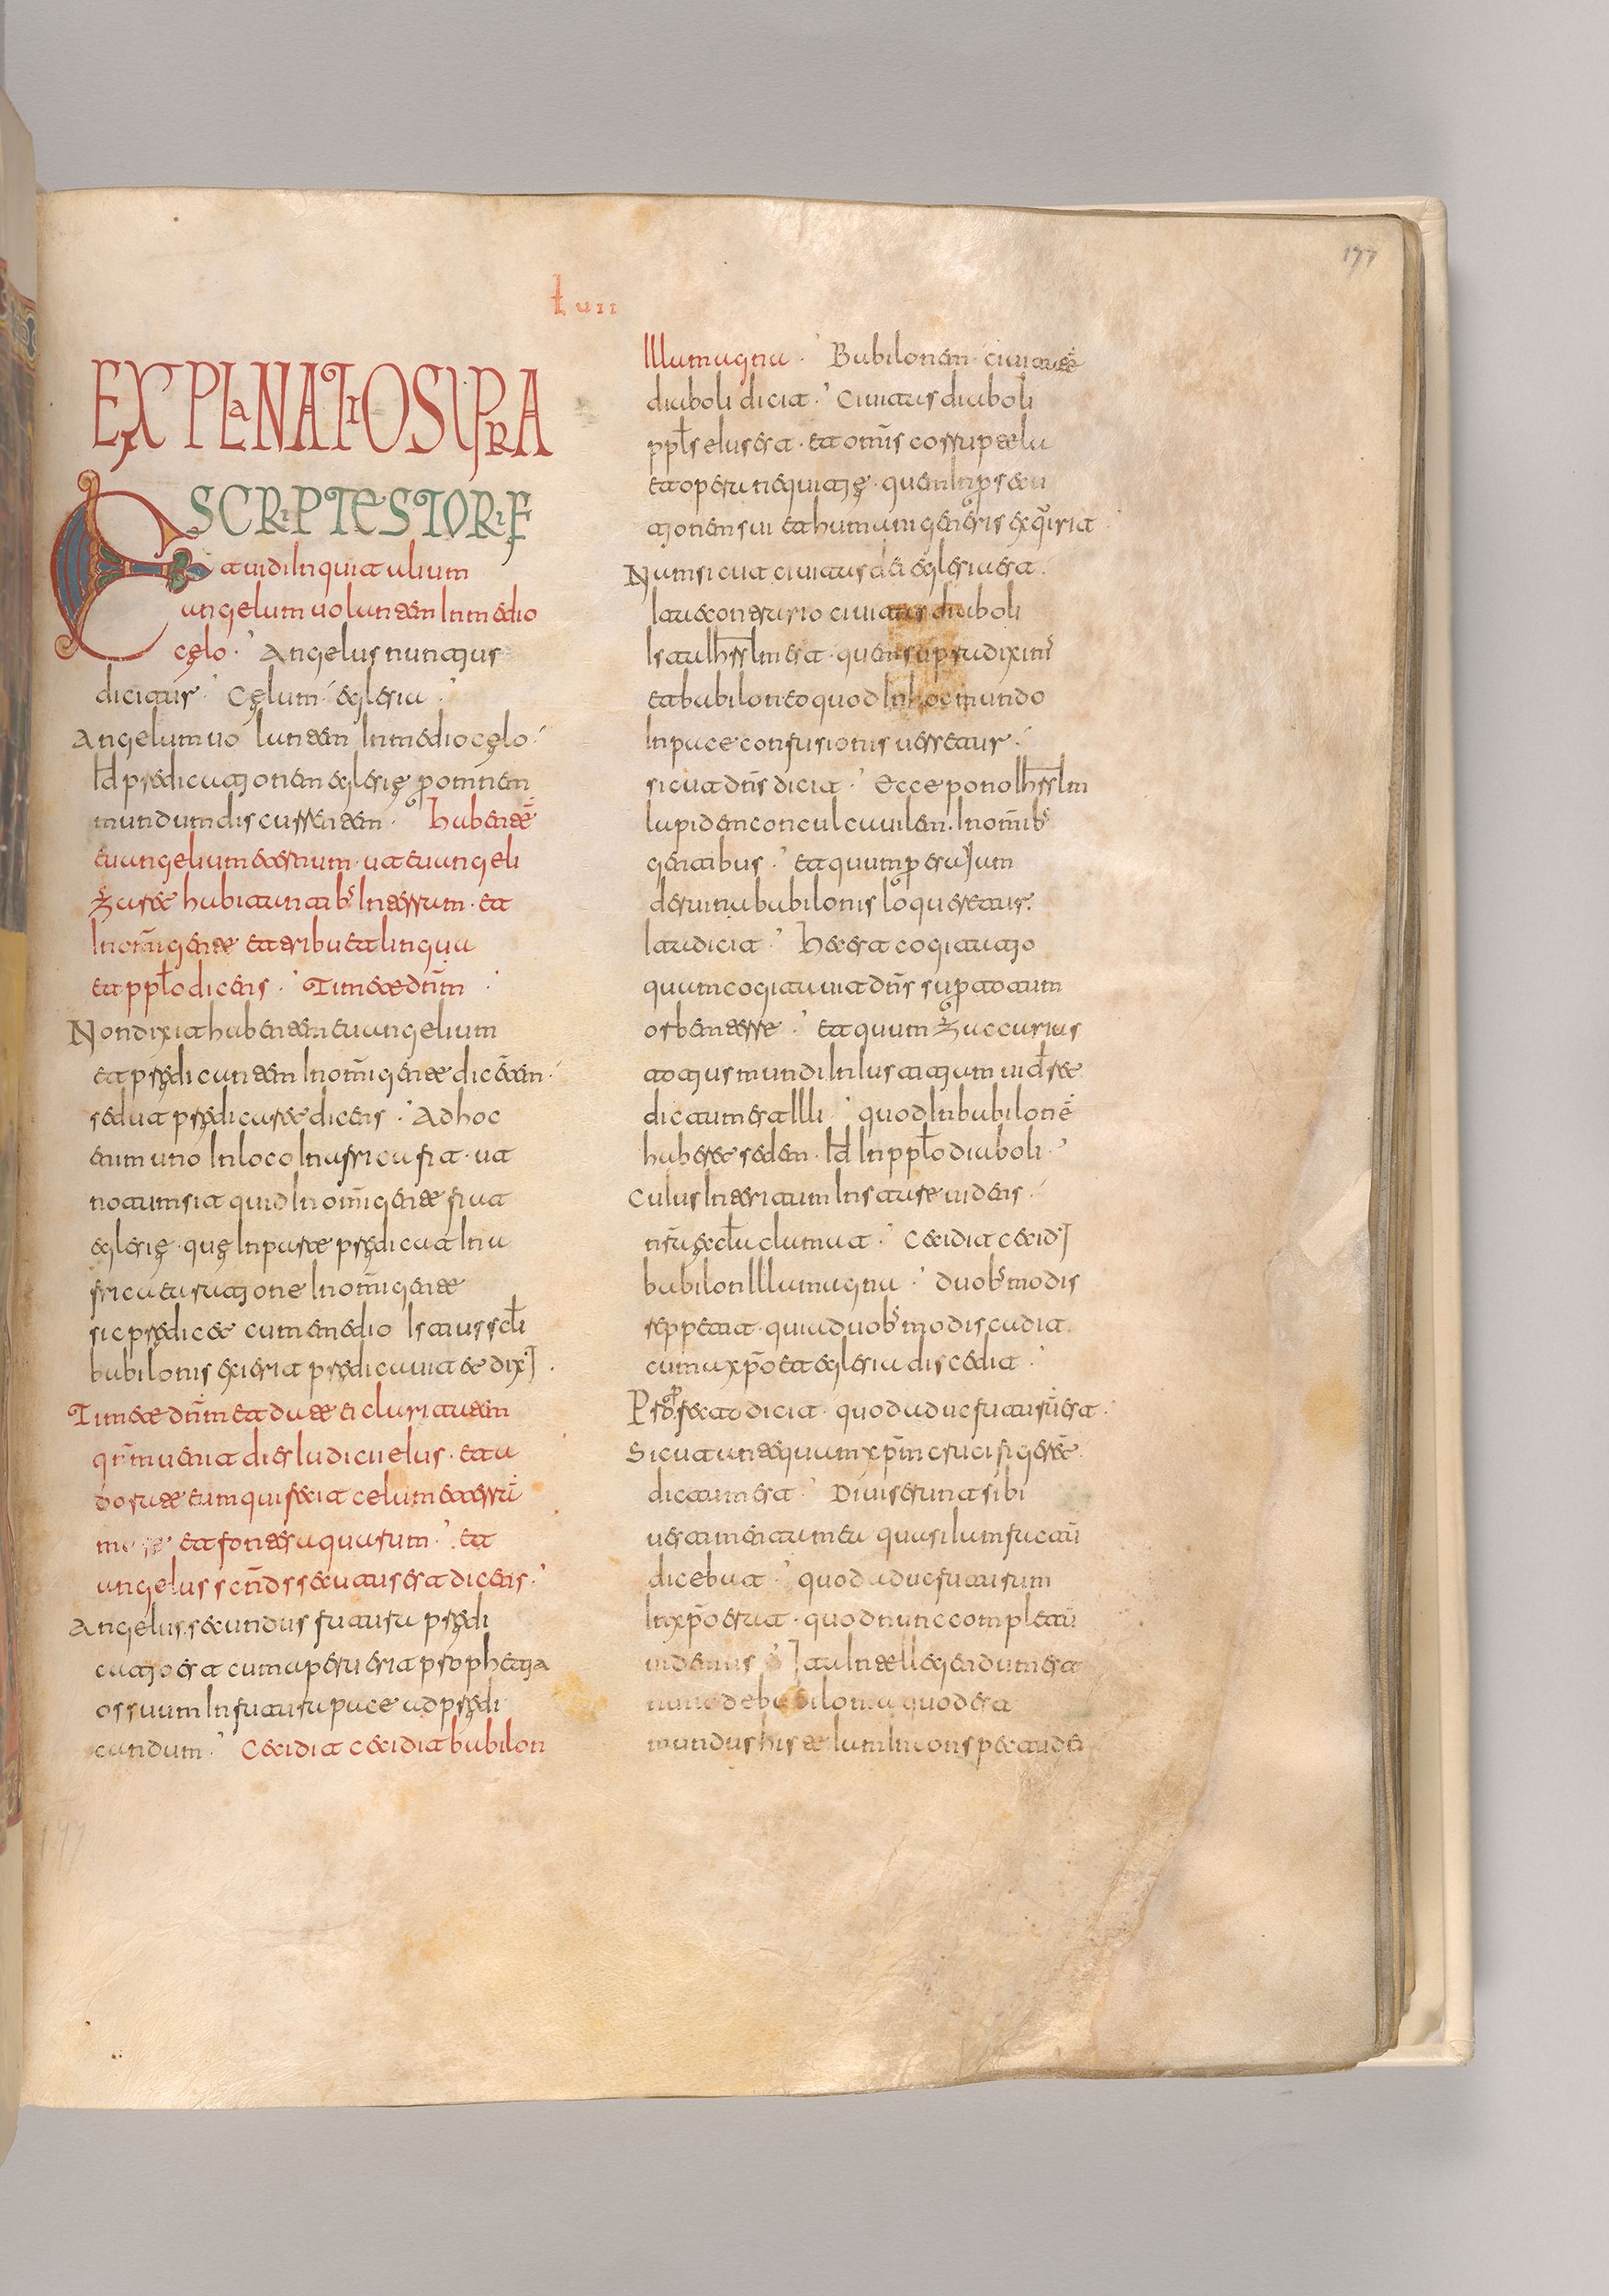 177
ł uii
EXPLANATIO SUPRA
SCRIPTE STORIE
Et uidi inquit alium
angelum uolantem in medio
cęlo. Angelus nuntius
dicitur. Cęlum eglesia.
Angelum uolantem in medio cęlo.
Id predicationem eglesię per omnem
mundum discurrentem. habentē
euangelium eternum. ut euangeli
zaret habitantibꝰ in terram. et
in om̄i gente et tribu et lingua
et pplo dicens. Timete dn̄m
Non dixit habentem euangelium
et prędicantem in om̄i gente dicentem.
sed ut prędicaret dicens. Ad hoc
enim uno in loco in africa fit. ut
notum sit quid in om̄i gente fiat
eglesię. quę in parte prędicat in a
frica et ratione in om̄i gente
sic prędicet cum e medio istius scłi
babilonis exierit prędicauit et dixit.
Timete dn̄m et date ei claritatem
qn̄m uenit dies iudicii eius. et a
dorate eum qui fecit celum et terrā
mare et fontes aquarum. et
angelus scn̄ds secutus est dicens.
Angelus secundus futura prędi
catio est cum aperuerit prophetia
os suum in futura pace ad prędi
candum. Cecidit cecidit babilon
illa magna. Babilonem ciuitatē
diaboli dicit. Ciuitas diaboli
ppłs eius est. et omīs corruptela
et opera nequitię. quem in persecu
tionem sui et humani generis exquirit.
Nam sicut ciuitas dei eglesia est.
ita e contrario ciuitas diaboli
ista ihr̄slm est. quem supra diximꝰ
et babilon eo quod in hoc mundo
in pace confusionis uersetur.
sicut dn̄s dicit. Ecce pono ihr̄slm
lapidem conculcauilem. in om̄ibꝰ
gentibus. et quum per esaiam
de ruina babilonis loqueretur.
ita dicit. hec est cogitatio
quum cogitauit dn̄s super totum
orbem terre. et quum zaccarias
totius mundi iniustitium uideret
dictum est illi. quod in babilonē
haberet sedem. Id in pplo diaboli.
Cuius interitum instare uidens.
nr̄a ęcła clamat. Cecidit cecidit
babilon illa magna. duobꝰ modis
reppetit. quia duobꝰ modis cadit.
cum a xp̄o et eglesia discedit.
Pro perfecto dicit. quod aduc futurū est.
Sicut ante quum xp̄m crucifigerēt
dictum est. Diuiserunt sibi
uestimenta mea quasi iam factū
dicebat. quod aduc futurum
in xp̄o erat. quod nunc completū
uidemus. ita intellegendum est
nunc de babilonia quod est
mundus